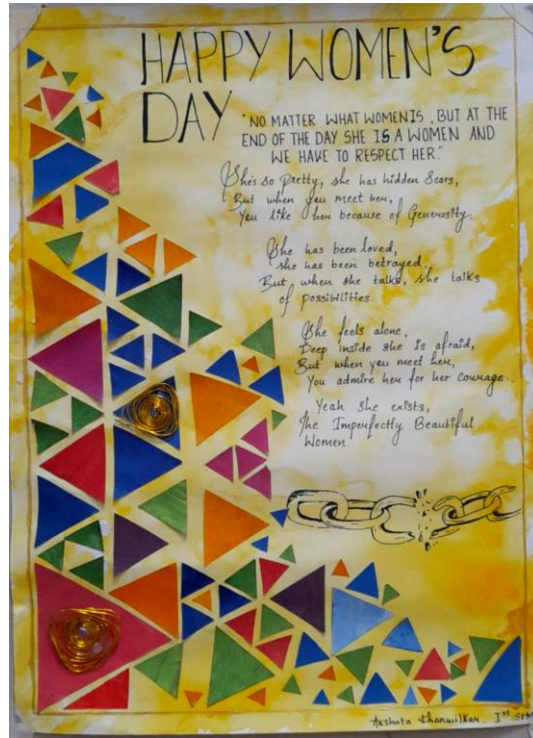 HAPPY WOMEN'S
DAY
"NO MATTER WHAT WOMEN IS, BUT AT THE
END OF THE DAY SHE IS A WOMEN AND
WE HAVE TO RESPECT HER."
She's so Pretty, she has hidden Scars,
But when you meet her,
You like her because of Generosity.
She has been loved,
she has been betrayed,
But when she talks, she talks
of possibilities.
She feels alone,
Deep inside she is afraid,
But when you meet her,
You admire her for her courage.
Yeah she exists,
The Imperfectly Beautiful
Women.
Akshata Khanvilkar Ist Sem